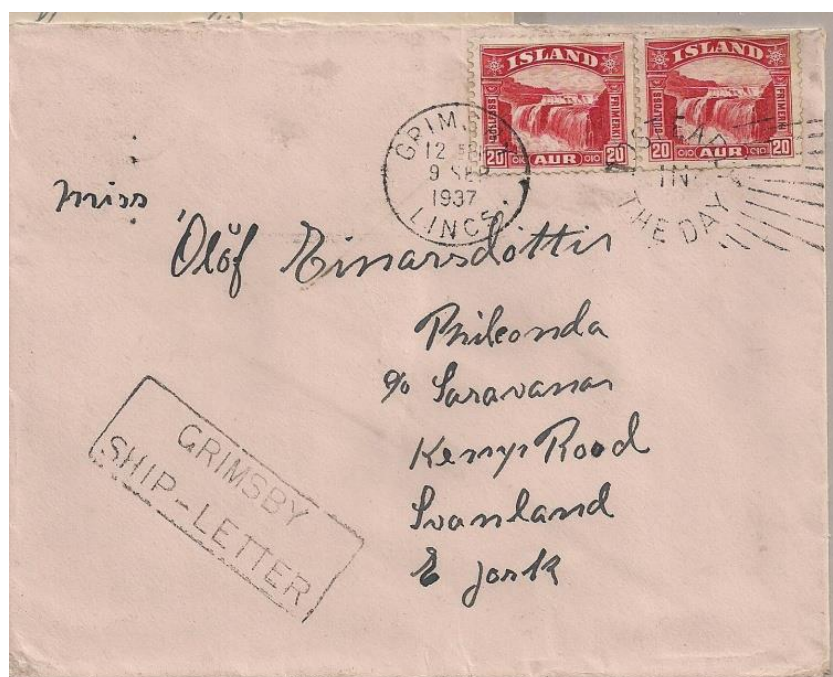 ISLAND
GULLFOSS
FRIMERKI
20 AUR 20
ISLAND
GULLFOSS
FRIMERKI
20 AUR 20
12
9 SEP
1937
LINCS.
IN
THE DAY
miss
Ólöf Einarsdóttir
c/o Saravanar
Road
Svanland
E York
GRIMSBY
SHIP-LETTER